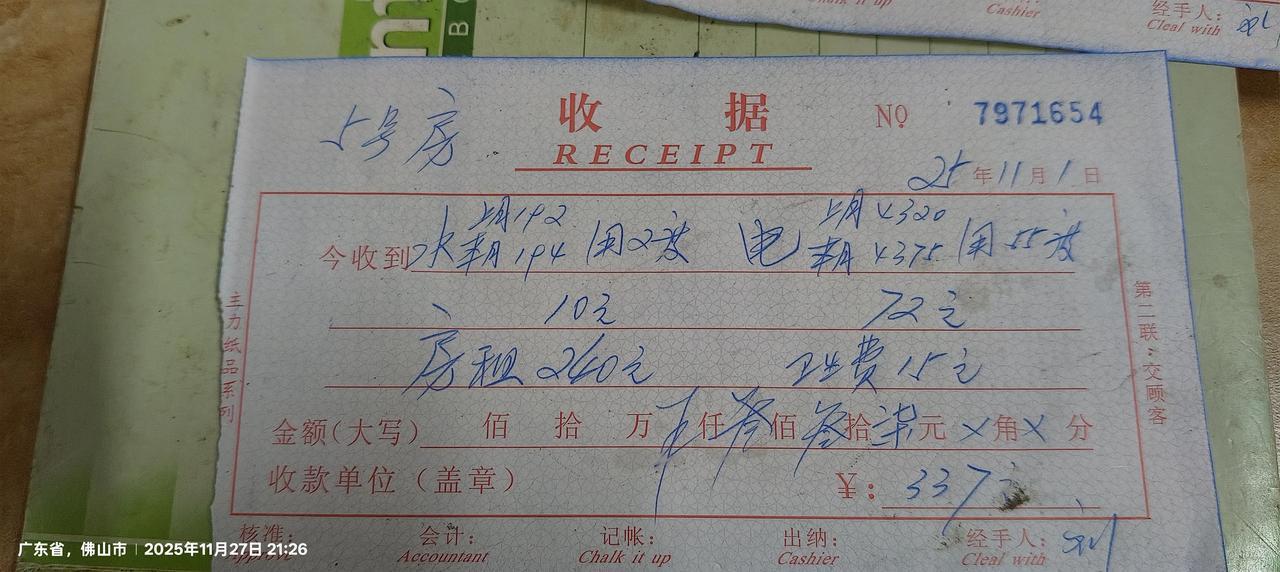 Chalk it up Cashier 经手人：
Cleal with
B
5号房 收据 NO 7971654
RECEIPT
25年11月1日
上月192 上月4320
今收到水 本月194 用2度 电 本月4375 用55度
10元 72元
房租240元 卫生费15元
金额（大写） 佰 拾 万 仟 叁佰 叁拾柒元 X角X分
收款单位（盖章） ¥：337
主力纸品系列
第二联：交顾客
核准： 会计： 记帐： 出纳： 经手人：
Accountant Chalk it up Cashier Cleal with
广东省，佛山市 | 2025年11月27日 21:26